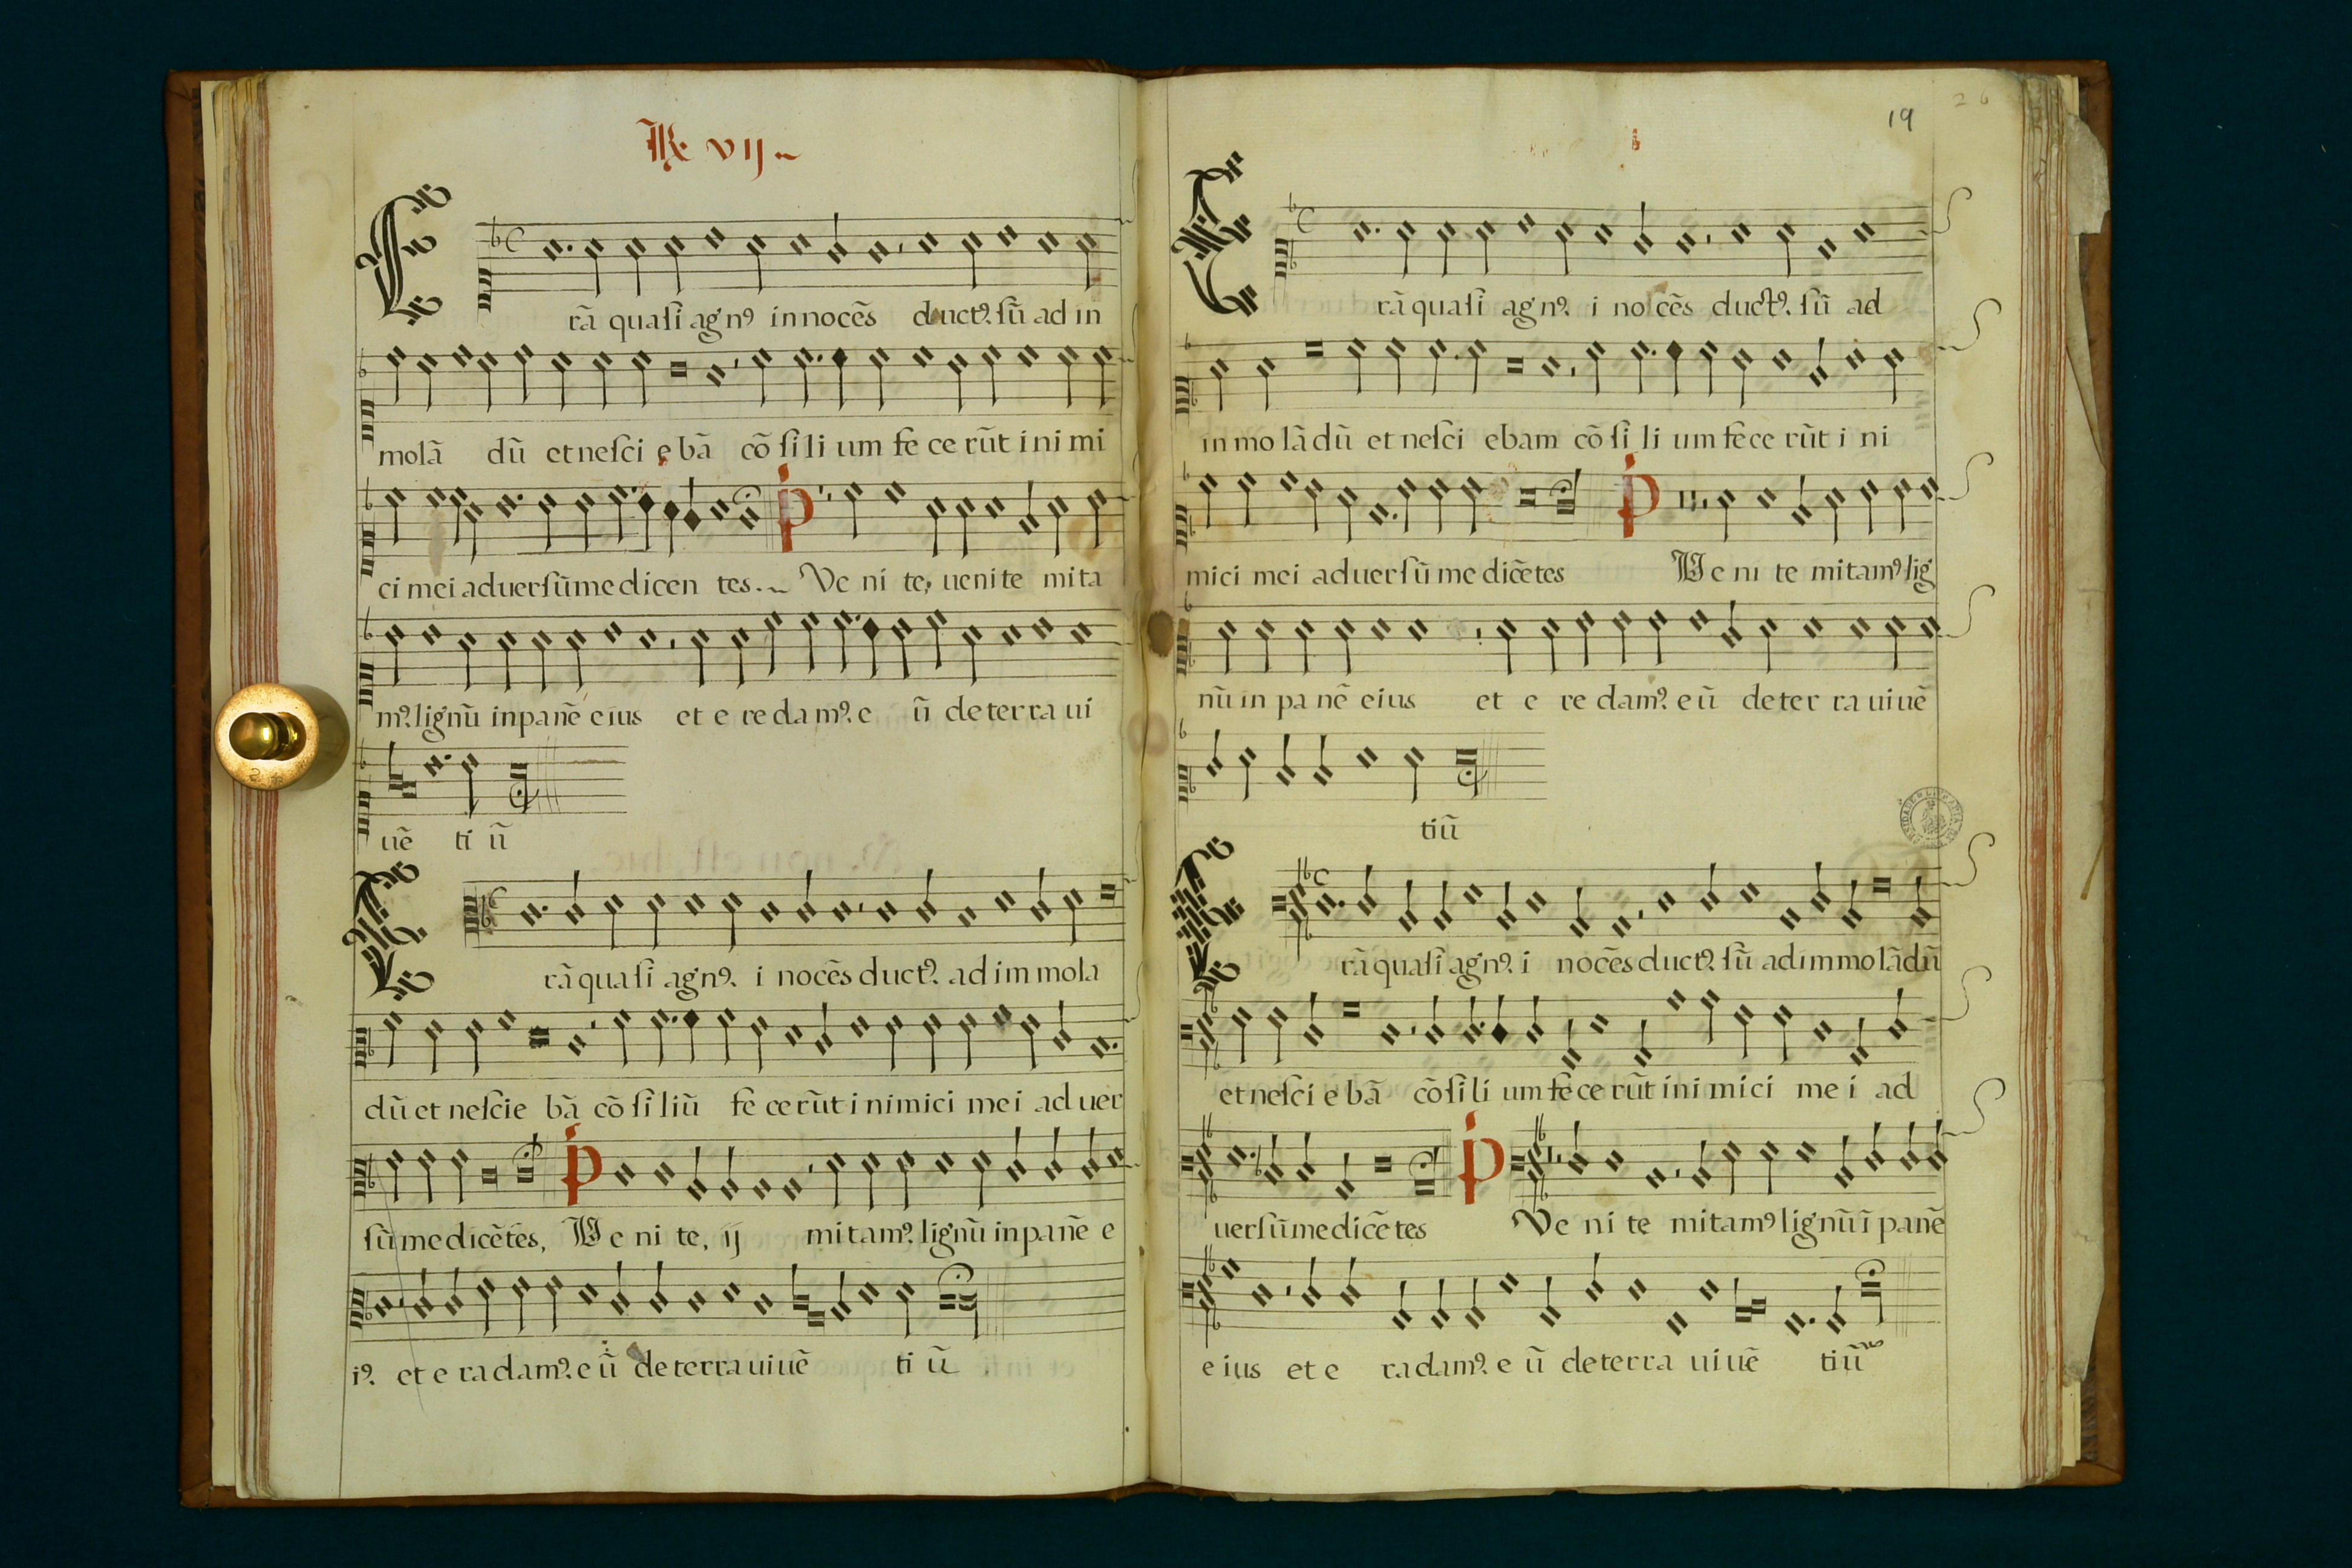 R̃ vij
E rã quasi agnꝰ innocẽs ductꝰ. sũ ad in
molã dũ et nesci e bã cõ si li um fe ce rũt i ni mi
ci mei aduersũ me dicen tes. Ve ni te, uenite mita
mꝰ. lignũ in panẽ eius et e re da mꝰ. e ũ de ter ra ui
uẽ ti ũ
E rã quasi agnꝰ. i nocẽs ductꝰ. ad im mola
dũ et nescie bã cõ si liũ fe ce rũt i nimici mei ad uer
sũ me dicẽ tes, Ve ni te, ij mi tamꝰ. lignũ in panẽ e
iꝰ. et e ra damꝰ. e ũ de terra ui uẽ ti ũ
19
26
E rã quasi agnꝰ. i no cẽs ductꝰ. sũ ad
in mo lã dũ et nesci ebam cõ si li um fe ce rũt i ni
mici mei aduersũ me dicẽtes Ve ni te mitamꝰ lig
nũ in pa nẽ eius et e re damꝰ. e ũ de ter ra ui uẽ
tiũ
E rã quasi agnꝰ. i nocẽs ductꝰ. sũ ad immo lã dũ
et nesci e bã cõ si li um fe ce rũt i ni mi ci me i ad
uersũ me dicẽ tes Ve ni te mitamꝰ lignũ ĩ panẽ
e ius et e ra damꝰ. e ũ de ter ra ui uẽ tiũ